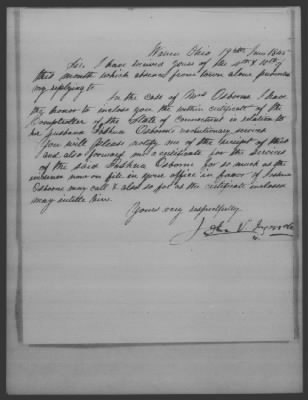 Warren Ohio 19th June 1845
Sir. I have received yours of the 4th & 10th of
this month which absence from town alone prevented
my replying to.
In the case of Mrs Osborne I have
the honor to inclose you the within certificate of the
Comptroller of the State of Connecticut in relation to
her husband Joshua Osborn's revolutionary service
You will please notify me of the receipt of this
and also forward me a certificate for the service
of the said Joshua Osborne for so much as the
evidence now on file in your office in favor of Joshua
Osborne may call & also so far as the certificate inclosed
may entitle him.
Yours very respectfully
John